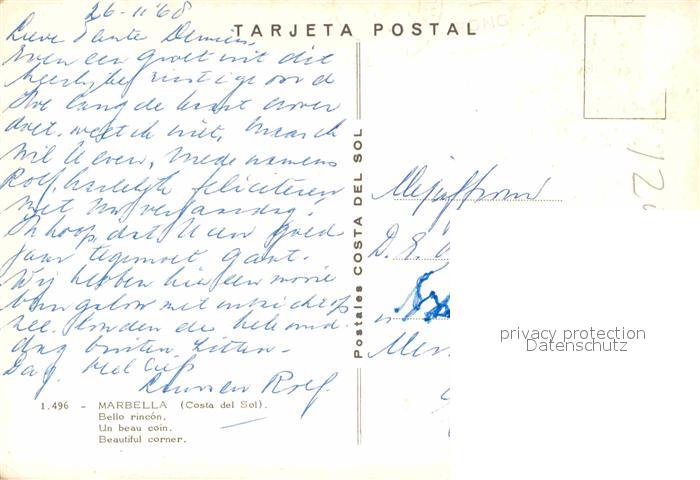 26-11-'68
TARJETA POSTAL
Lieve Tante
Even een groet uit dit
heerlijke rustige oord
Hoe lang de kaart erover
doet, weet ik niet, maar ik
wil U even, mede namens
Rolf, hartelijk feliciteren
met Uw verjaardag.
Ik hoop, dat U een goed
jaar tegemoet gaat.
Wij hebben hier een mooie
bungalow met uitzicht op
zee. Konden de hele
dag buiten zitten.
Dag, veel liefs
Rolf.
Postales COSTA DEL SOL
Mejuffrouw
D. E.
1.496 - MARBELLA (Costa del Sol).
Bello rincón.
Un beau coin.
Beautiful corner.
privacy protection
Datenschutz